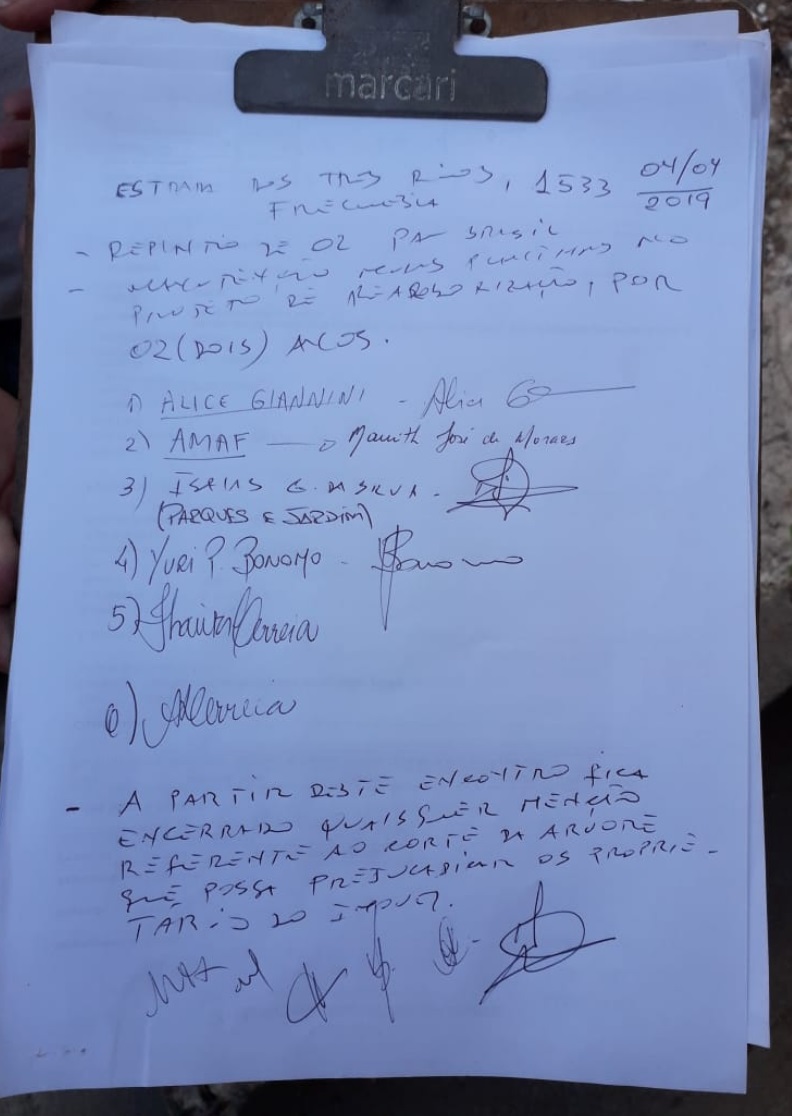 marcari
ESTRADA DOS TRES RIOS, 1533 04/04
FREGUESIA 2019
- REPLANTIO DE 02 PAU BRASIL
- MANUTENÇÃO PLANTADAS NO
PROJETO DE REARBORIZAÇÃO, POR
02 (DOIS) ANOS.
1) ALICE GIANNINI - Alice
2) AMAF José de Moraes
3) ISAIAS G. DA SILVA -
(PARQUES E JARDIM)
4) YURI P. BONOMO - Bonomo
5) Correia
6)
- A PARTIR DESTE ENCONTRO FICA
ENCERRADO QUAISQUER MENÇÃO
REFERENTE AO CORTE DA ARVORE
QUE POSSA PREJUDICAR OS PROPRIE-
TARIO DO IMOVEL.